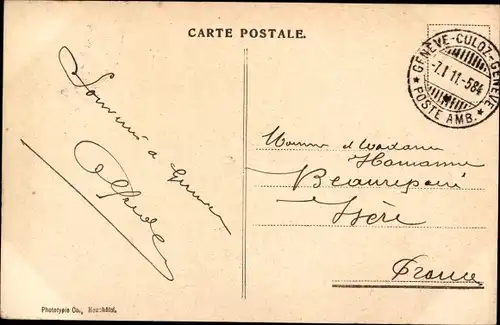 CARTE POSTALE.
GENÈVE-CULOZ-GENÈVE
-7.I 11.-584
★ POSTE AMB. ★
Souvenir de
Monsieur et Madame
Beaurepaire
Isère
France
Phototypie Co., Neuchâtel.